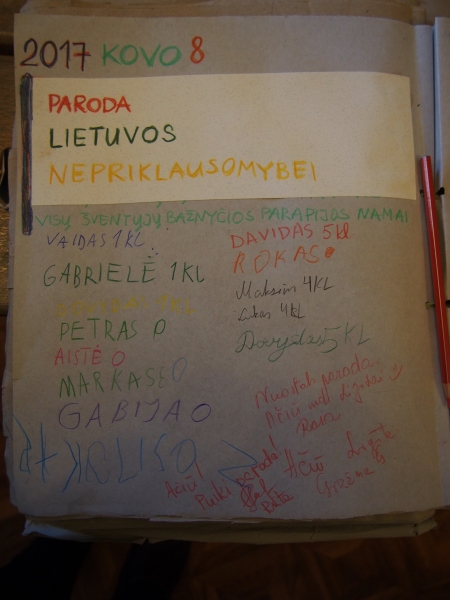 2017 KOVO 8
PARODA
LIETUVOS
NEPRIKLAUSOMYBEI
VISŲ ŠVENTŲJŲ BAŽNYČIOS PARAPIJOS NAMAI
VAIDAS 1 KL
GABRIELĖ 1KL
PETRAS 0
AISTĖ 0
MARKAS 0
GABIJA 0
DAVIDAS 5 kl
ROKAS
Maksim 4KL
Lukas 4 KL
Dovydas 5 KL
Nuostabi paroda.
Ačiū
Ačiū!
Puiki paroda!
Ačiū